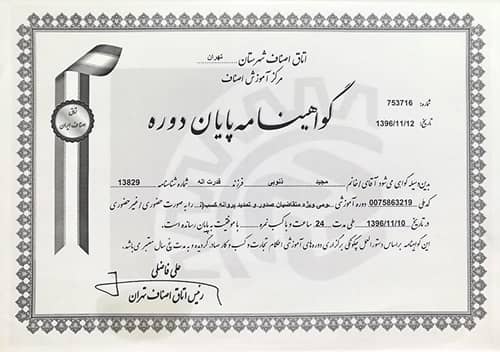 اتاق اصناف شهرستان ... تهران ...
مرکز آموزش اصناف
اتاق اصناف ایران
شماره: 753716
تاریخ: 1396/11/12
گواهینامه پایان دوره
بدین وسیله گواهی می شود آقای / خانم مجید ذنوبی فرزند قدرت اله شماره شناسنامه 13829
کد ملی 0075863219 دوره آموزشی ..ومی ویژه متقاضیان صدور و تمدید پروانه کسب(ن.. را به صورت حضوری / غیر حضوری
در تاریخ 1396/11/10 طی مدت 24 ساعت و با کسب نمره با موفقیت به پایان رسانده است.
این گواهینامه بر اساس دستورالعمل چگونگی برگزاری دوره های آموزشی احکام تجارت و کسب و کار صادر گردیده و به مدت پنج سال معتبر می باشد.
علی فاضلی
رئیس اتاق اصناف تهران